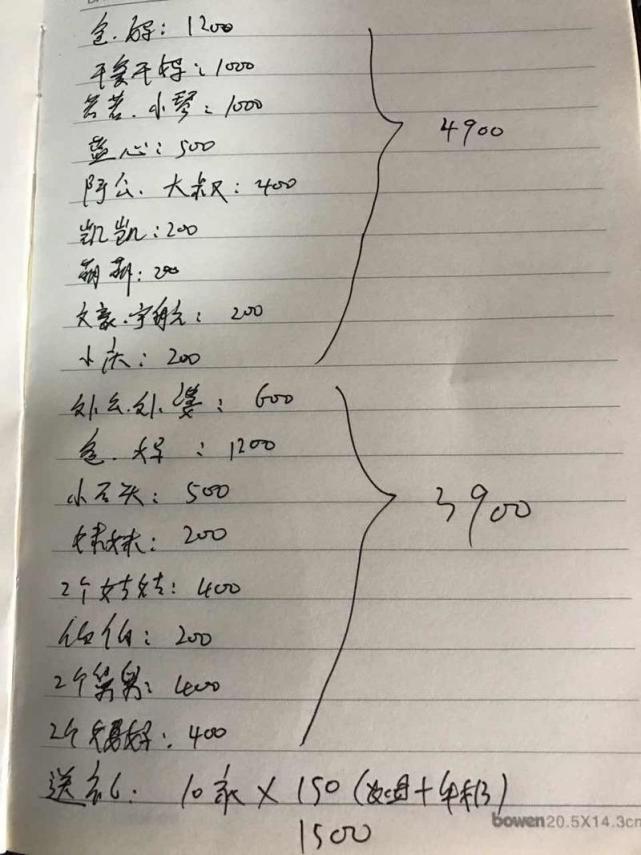 爸.妈: 1200
干爹干妈: 1000
爸爸.小琴: 1000
蓝心: 500
阿公.大叔: 400
凯凯: 200
萌萌: 200
文豪.宇航: 200
小庆: 200
4900
外公.外婆: 600
爸.妈: 1200
小石头: 500
妹妹: 200
2个姑姑: 400
伯伯: 200
2个舅舅: 400
2个舅妈: 400
3900
送礼: 10家 × 150
1500
bowen 20.5X14.3cm